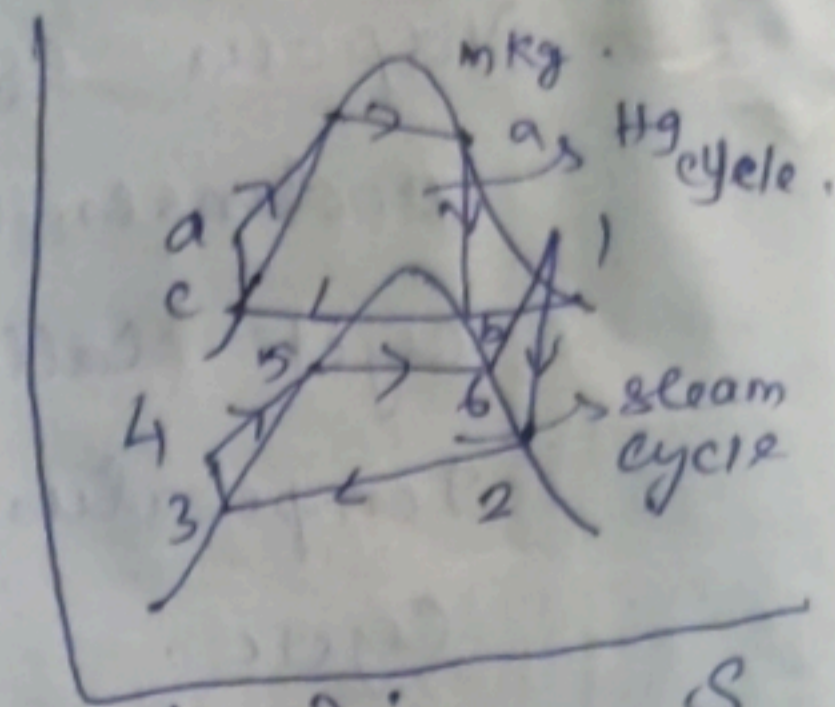 m kg
a Hg
cycle.
a
c
1
b
5
6
4
steam
cycle
3
2
S